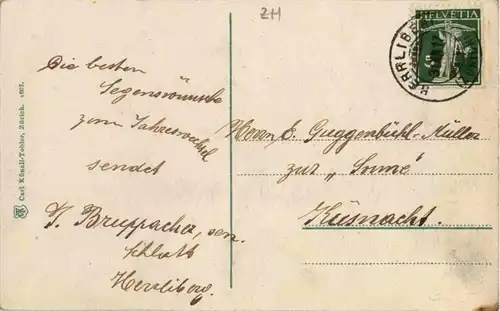 ZH
Die besten
Segenswünsche
zum Jahreswechsel
sendet
Bruppacher, sen.
Schlatt
Herrliberg.
Carl Künzli-Tobler, Zürich.
HELVETIA
HERRLIBERG
Herrn E. Guggenbühl-Müller
zur „Sonne“
Küsnacht.